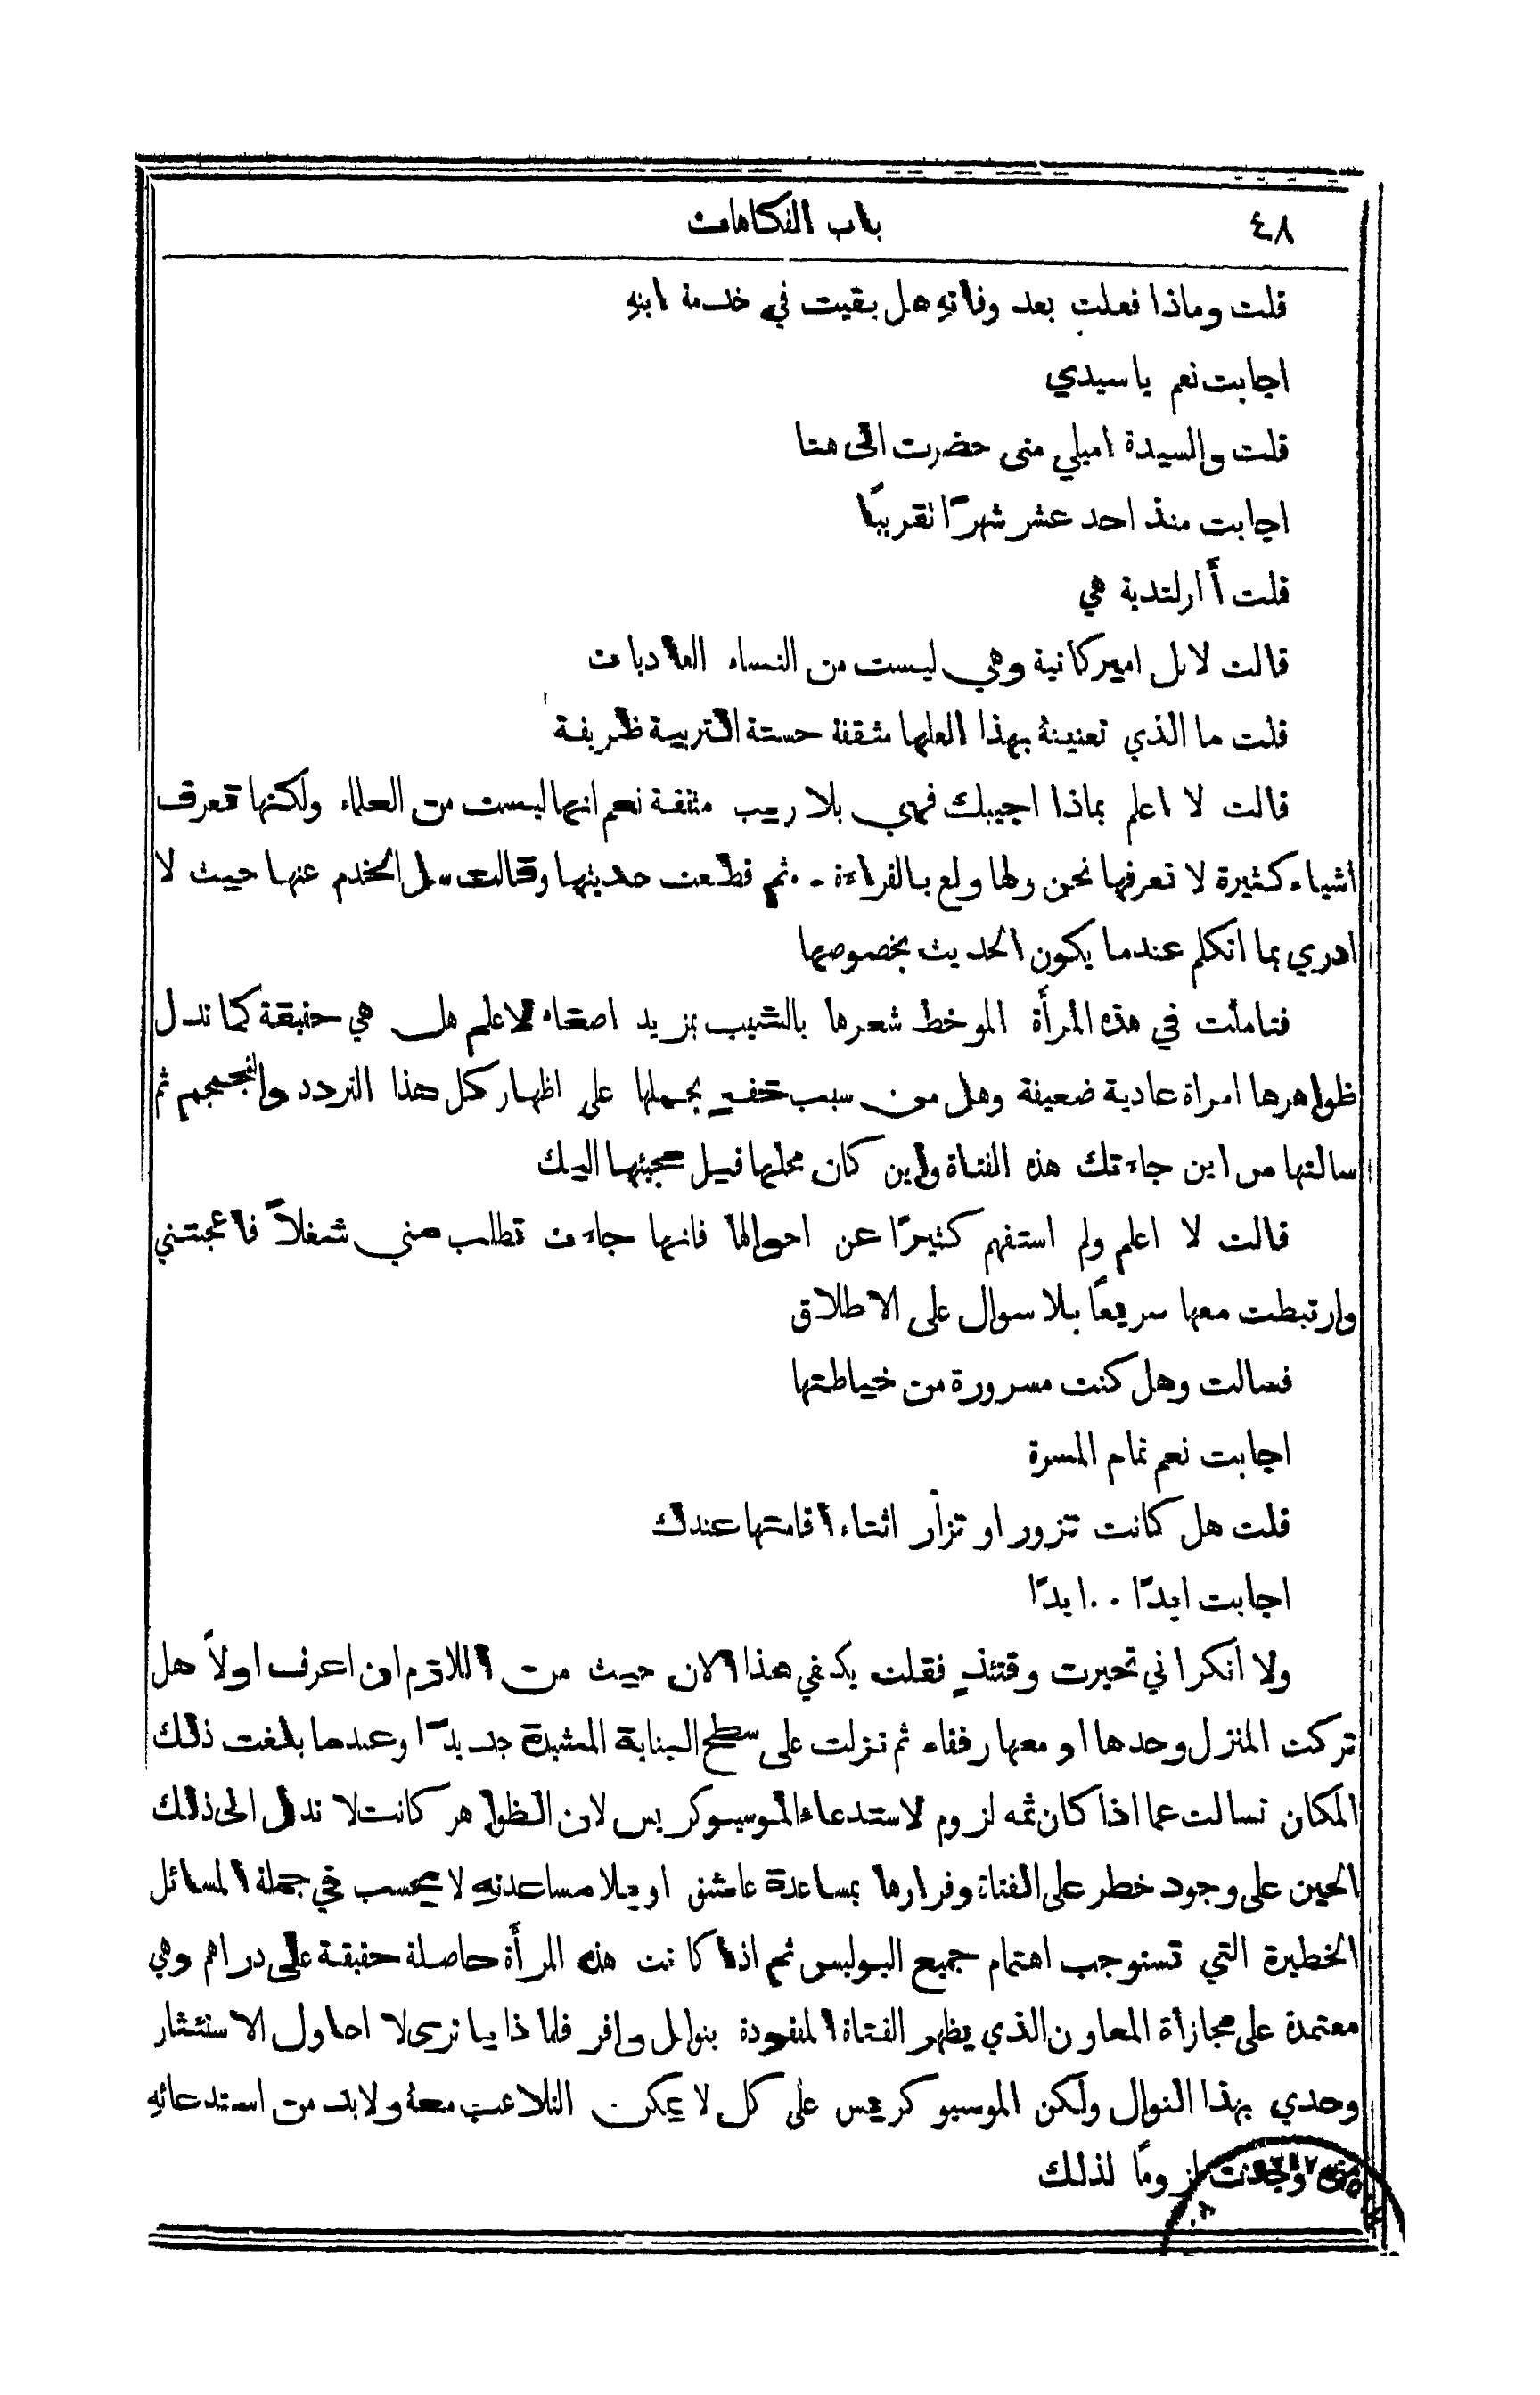 ٤٨
باب الفكاهات
قلت وماذا فعلتِ بعد وفاتهِ هل بقيت في خدمة ابنهِ
اجابت نعم ياسيدي
قلت والسيدة اميلي متى حضرت الى هنا
اجابت منذ احد عشر شهرًا تقريبًا
قلت أَارلندية هي
قالت لا بل اميركانية وهي ليست من النساء العاديات
قلت ما الذي تعنينهُ بهذا العلها مثقفة حسنة التربية ظريفة
قالت لا اعلم بماذا اجيبك فهي بلا ريب مثقفة نعم انها ليست من العلماء ولكنها تعرف
اشياء كثيرة لا نعرفها نحن ولها ولع بالقراءة - ثم قطعت حديثها وقالت سل الخدم عنها حيث لا
ادري بما اتكلم عندما يكون الحديث بخصوصها
فتاملت في هذه المرأَة الموخط شعرها بالشيب بمزيد اصغاء لاعلم هل هي حقيقة كما تدل
ظواهرها امراة عادية ضعيفة وهل من سبب خفي يجملها على اظهار كل هذا التردد والتجمجم ثم
سالتها من اين جاءتك هذه الفتاة واين كان محلها قبل مجيئها اليك
قالت لا اعلم ولم استفهم كثيرًا عن احوالها فانها جاءت تطلب مني شغلاً فاعجبتني
وارتبطت معها سريعًا بلا سوال على الاطلاق
فسالت وهل كنت مسرورة من خياطتها
اجابت نعم تمام المسرة
قلت هل كانت تزور او تزأر اثناء اقامتها عندك
اجابت ابدًا ٠٠ ابدًا
ولا انكر اني تحيرت وقتئذٍ فقلت يكفي هذا الان حيث من اللازم ان اعرف اولاً هل
تركت المنزل وحدها او معها رفقاء ثم نزلت على سطح البناية المشيدة جديدًا وعندما بلغت ذلك
المكان تسالت عما اذا كان ثمه لزوم لاستدعاء الموسيوكريس لان الظواهر كانت لا تدل الى ذلك
الحين على وجود خطر على الفتاة وفرارها بمساعدة عاشق او بلا مساعدته لا يحسب في جملة المسائل
الخطيرة التي تستوجب اهتمام جميع البوليس ثم اذا كانت هذه المرأَة حاصلة حقيقة على دراهم وهي
معتمدة على مجازاة المعاون الذي يظهر الفتاة المفقودة بنوال وافر فلماذا يا ترى لا احاول الاستئثار
وحدي بهذا النوال ولكن الموسيو كريس على كل لا يمكن التلاعب معهُ ولا بد من استدعائهِ
متى وجدت لزومًا لذلك